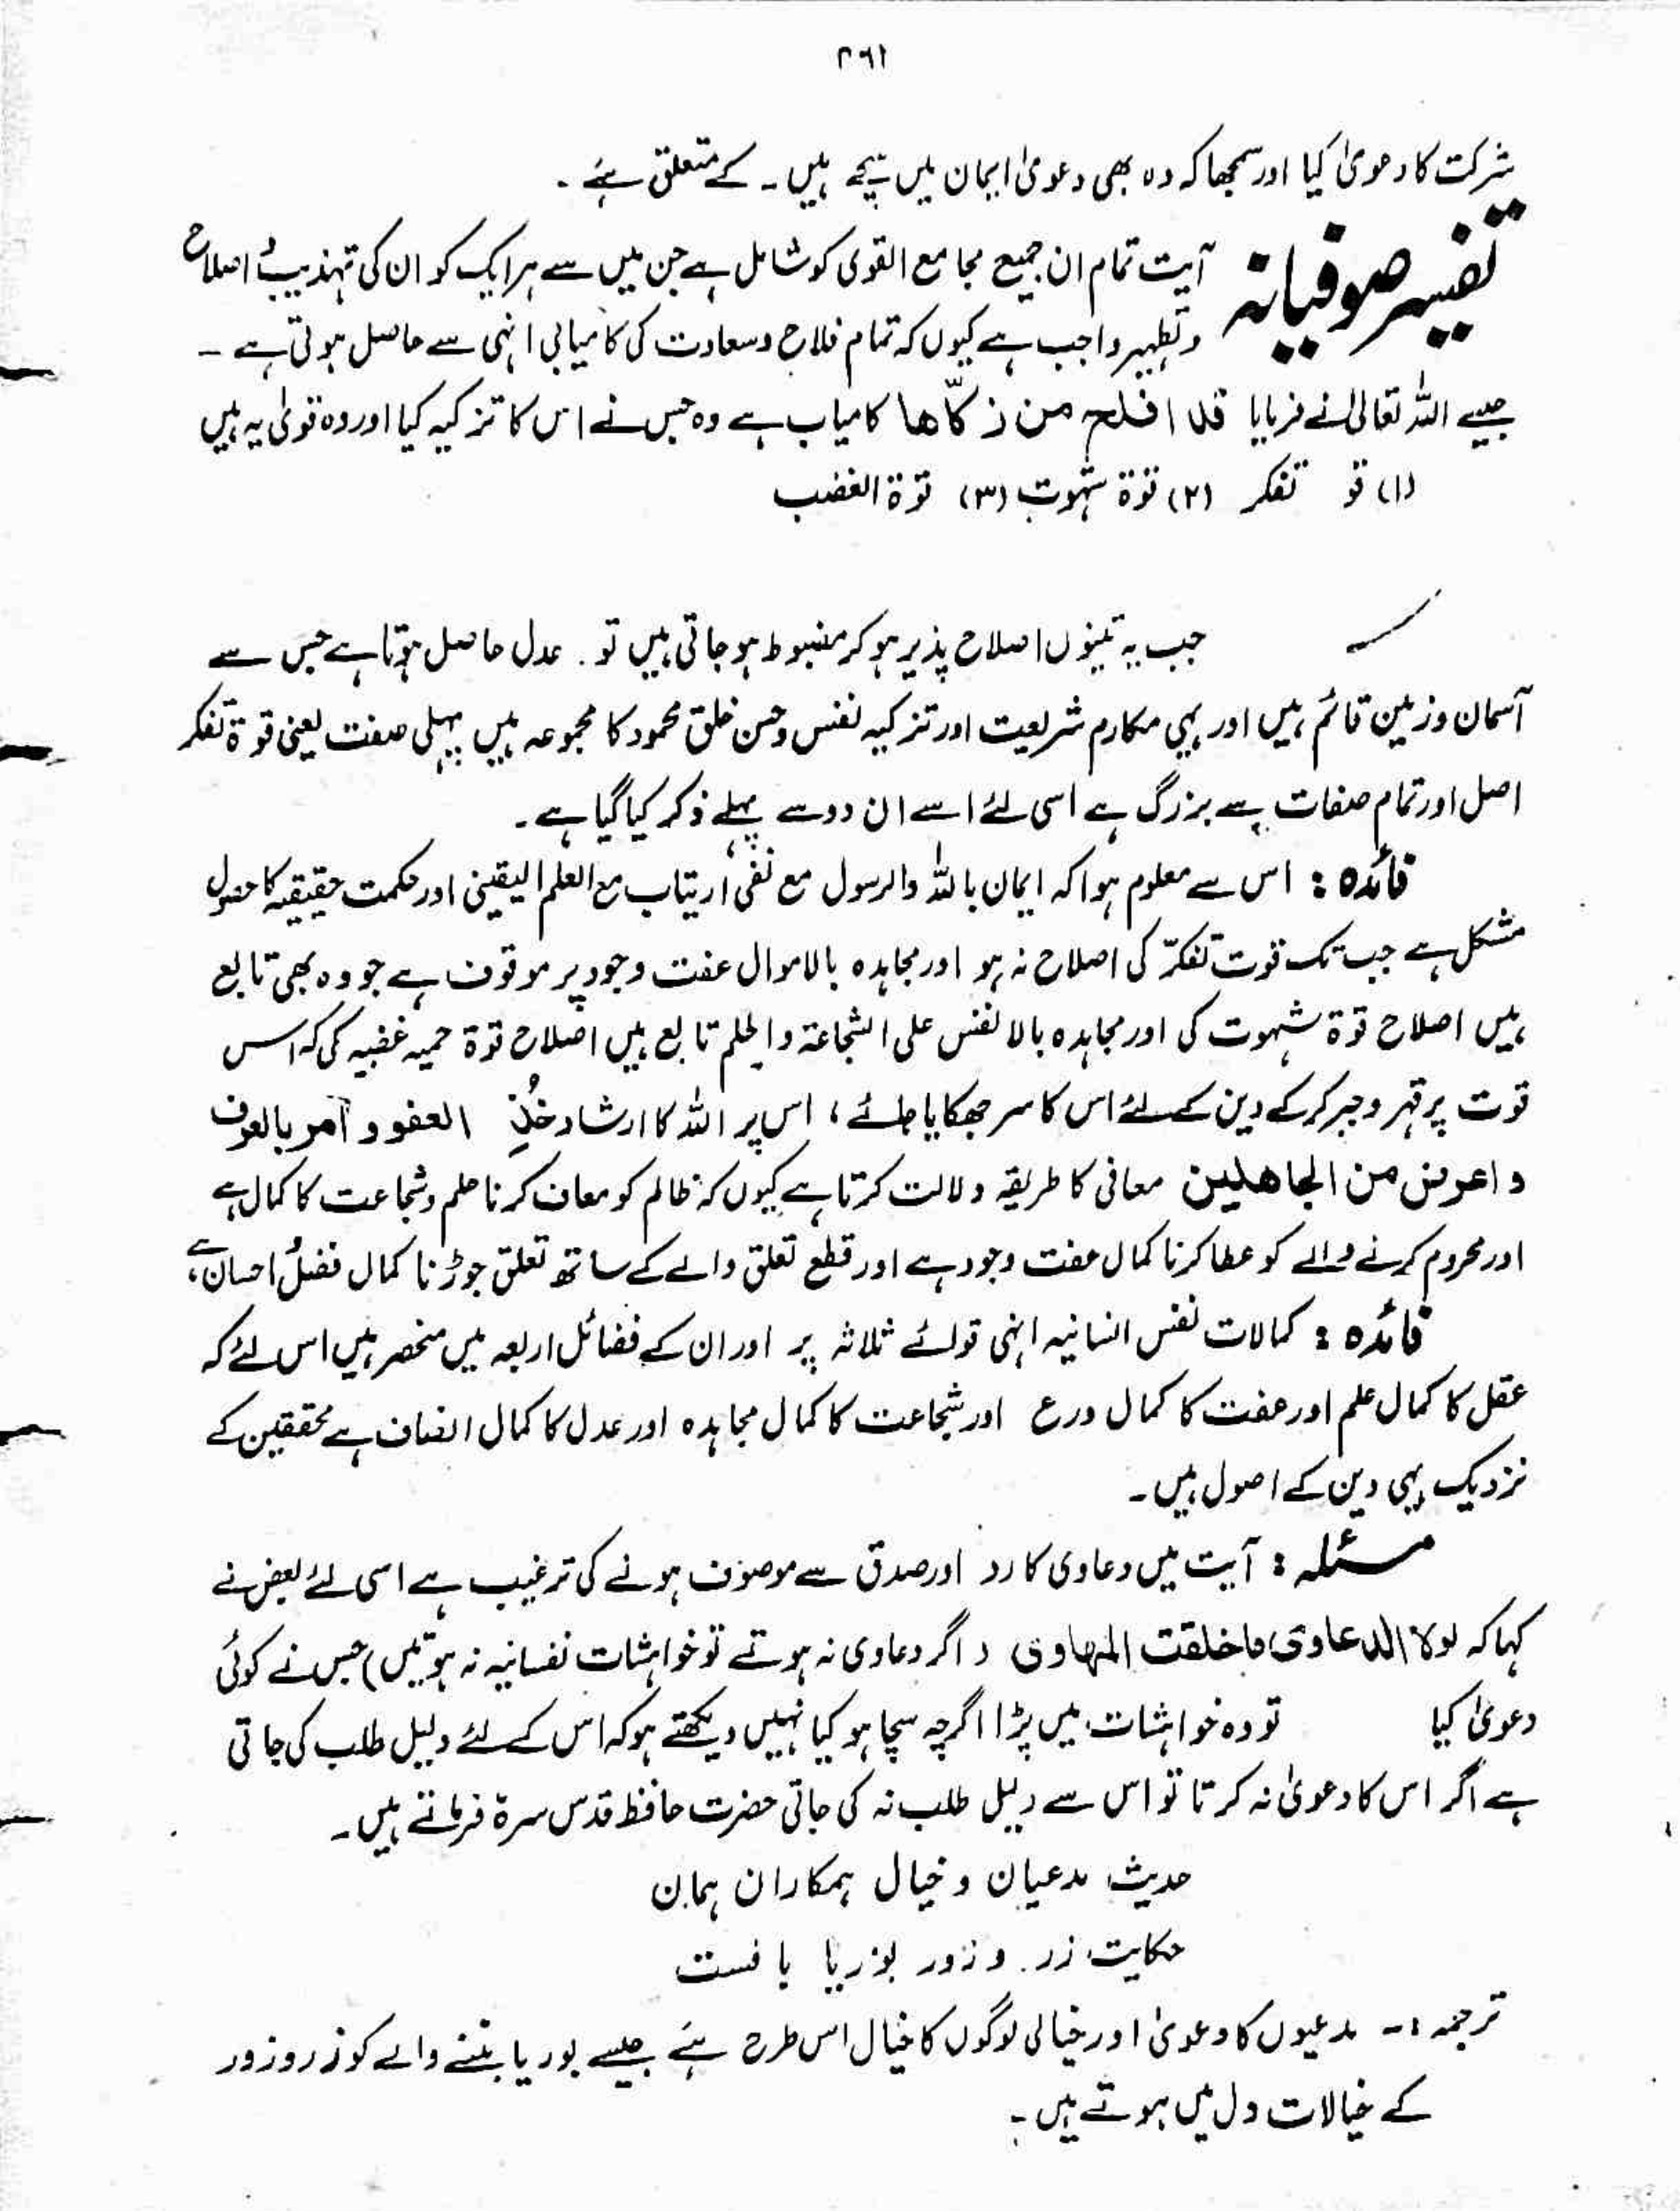 ۲۶۱
شرکت کا دعویٰ کیا اور سمجھا کہ وہ بھی دعویٰ ایمان میں سچے ہیں ۔ کے متعلق ہے ۔
تفسیر صوفیانہ
آیت تمام ان جمیع مجامع القوی کو شامل ہے جن میں سے ہر ایک کو ان کی تہذیب و اصلاح
و تطہیر واجب ہے کیوں کہ تمام فلاح و سعادت کی کامیابی انہی سے حاصل ہوتی ہے ۔
جیسے اللہ تعالیٰ نے فرمایا قد افلح من زکّاها کامیاب ہے وہ جس نے اس کا تزکیہ کیا اور وہ قویٰ یہ ہیں
(۱) قو تفکر (۲) قوۃ شہوت (۳) قوۃ الغضب
جب یہ تینوں اصلاح پذیر ہو کر مضبوط ہو جاتی ہیں تو . عدل حاصل ہوتا ہے جس سے
آسمان و زمین قائم ہیں اور یہی مکارم شریعت اور تزکیہ نفس و حسن خلق محمود کا مجموعہ ہیں پہلی صفت یعنی قوۃ تفکر
اصل اور تمام صفات سے بزرگ ہے اسی لئے اسے ان دو سے پہلے ذکر کیا گیا ہے ۔
فائدہ : اس سے معلوم ہوا کہ ایمان باللہ والرسول مع نفی ارتیاب مع العلم الیقینی اور حکمت حقیقیہ کا حصول
مشکل ہے جب تک قوت تفکّر کی اصلاح نہ ہو اور مجاہدہ بالاموال عفت وجود پر موقوف ہے جو وہ بھی تابع
ہیں اصلاح قوۃ شہوت کی اور مجاہدہ بالانفس علی الشجاعۃ والحلم تابع ہیں اصلاح قوۃ حمیہ غضبیہ کی کہ اس
قوت پر قہر و جبر کرکے دین کے لئے اس کا سر جھکایا جائے ، اس پر اللہ کا ارشاد خُذِ العفو و آمر بالعرف
و اعرض من الجاهلین معافی کا طریقہ دلالت کرتا ہے کیوں کہ ظالم کو معاف کرنا حلم و شجاعت کا کمال ہے
اور محروم کرنے والے کو عطا کرنا کمال عفت وجود ہے اور قطع تعلق والے کے ساتھ تعلق جوڑنا کمال فضل و احسان ہے ،
فائدہ : کمالات نفس انسانیہ انہی قوائے ثلاثہ پر اور ان کے فضائل اربعہ میں منحصر ہیں اس لئے کہ
عقل کا کمال علم اور عفت کا کمال ورع اور شجاعت کا کمال مجاہدہ اور عدل کا کمال انصاف ہے محققین کے
نزدیک یہی دین کے اصول ہیں ۔
مسئلہ : آیت میں دعاوی کا رد اور صدق سے موصوف ہونے کی ترغیب ہے اسی لئے بعض نے
کہا کہ لولا الدعاوی ما خلقت المهاوی ( اگر دعاوی نہ ہوتے تو خواہشات نفسانیہ نہ ہوتیں ) جس نے کوئی
دعویٰ کیا تو وہ خواہشات میں پڑا اگرچہ سچا ہو کیا نہیں دیکھتے ہو کہ اس کے لئے دلیل طلب کی جاتی
ہے اگر اس کا دعویٰ نہ کرتا تو اس سے دلیل طلب نہ کی جاتی حضرت حافظ قدس سرۃ فرماتے ہیں ۔
حدیث مدعیان و خیال ہمکاران ہمان
حکایت زر . و زور بوریا بافست
ترجمہ :- مدعیوں کا دعویٰ اور خیالی لوگوں کا خیال اس طرح ہے جیسے بوریا بننے والے کو زر و زور
کے خیالات دل میں ہوتے ہیں ۔